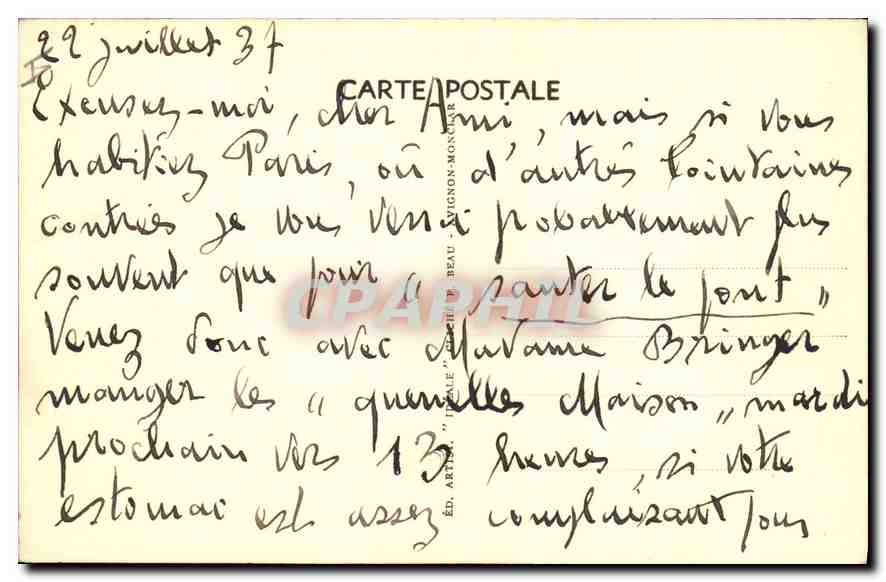 22 juillet 37
CARTE POSTALE
Excusez-moi, cher Ami, mais si vous
habitiez Paris, où d'autres lointaines
contrées je vous verrai probablement plus
souvent que pour "sauter le pont"
Venez donc avec Madame Bringer
manger les "quenelles Maison" mardi
prochain vers 13 heures, si votre
estomac est assez complaisant pour
ÉD. ARTIST. "IDÉALE" CLICHÉ E. BEAU - AVIGNON-MONCLAR
CPAPHIL